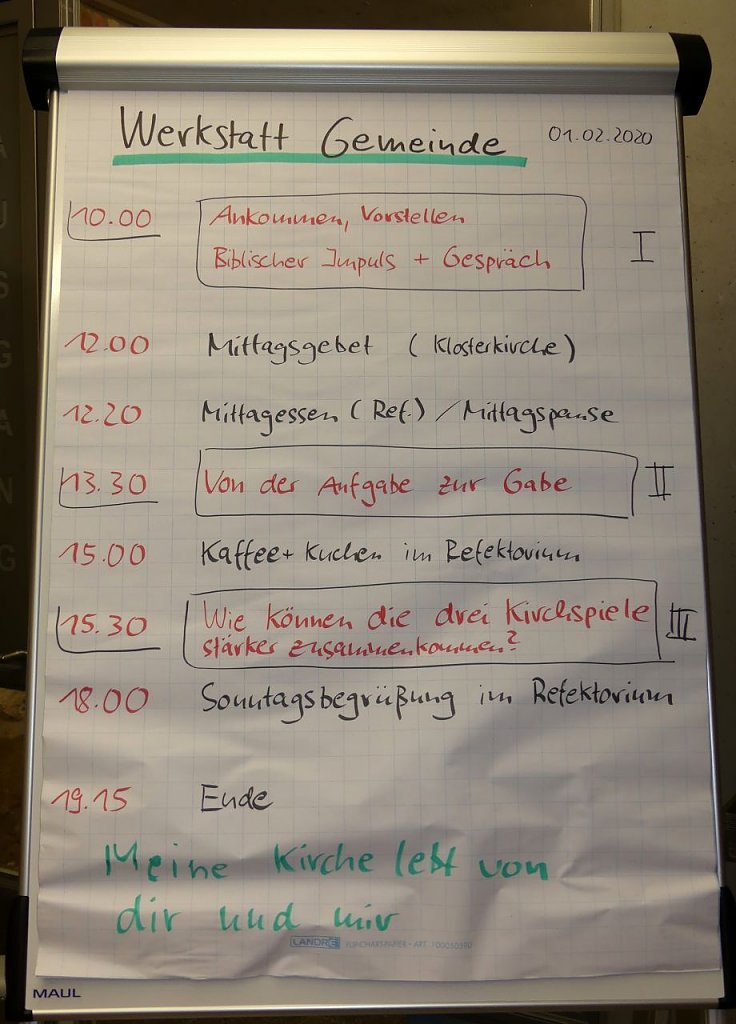 Werkstatt Gemeinde 01.02.2020
10.00 Ankommen, Vorstellen
Biblischer Impuls + Gespräch I
12.00 Mittagsgebet (Klosterkirche)
12.20 Mittagessen (Ref.) / Mittagspause
13.30 Von der Aufgabe zur Gabe II
15.00 Kaffee + Kuchen im Refektorium
15.30 Wie können die drei Kirchspiele III
stärker zusammenkommen?
18.00 Sonntagsbegrüßung im Refektorium
19.15 Ende
Meine Kirche lebt von
dir und mir
LANDRÉ FLIPCHARTPAPIER • ART. 100050590
MAUL